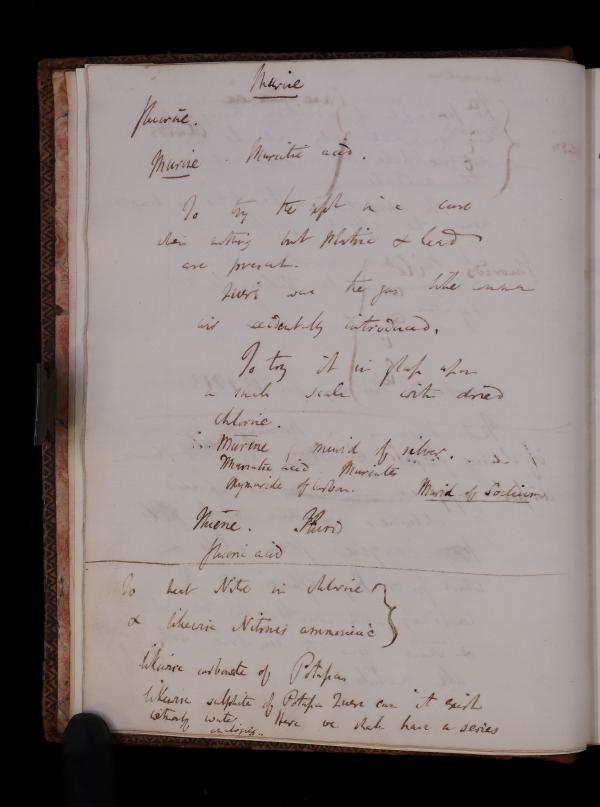 Murine
Fluorine.
Murine Muriatic acid.
To try the expt in a case
when nothing but Platina & lead
are present.
Quere was the gas like common
air accidentally introduced.
To try it in glass upon
a small scale with dried
chlorine.
Murine, murid of silver.
Muriatic acid Muriates
Oxymuride of carbon. Murid of Sodium
Fluorid
Fluoric acid
To heat Nitre in chlorine
& likewise Nitrous ammoniac
likewise carbonate of Potassa
likewise sulphite of Potassa Quere can it exist
without water. Here we shall have a series
analogies.